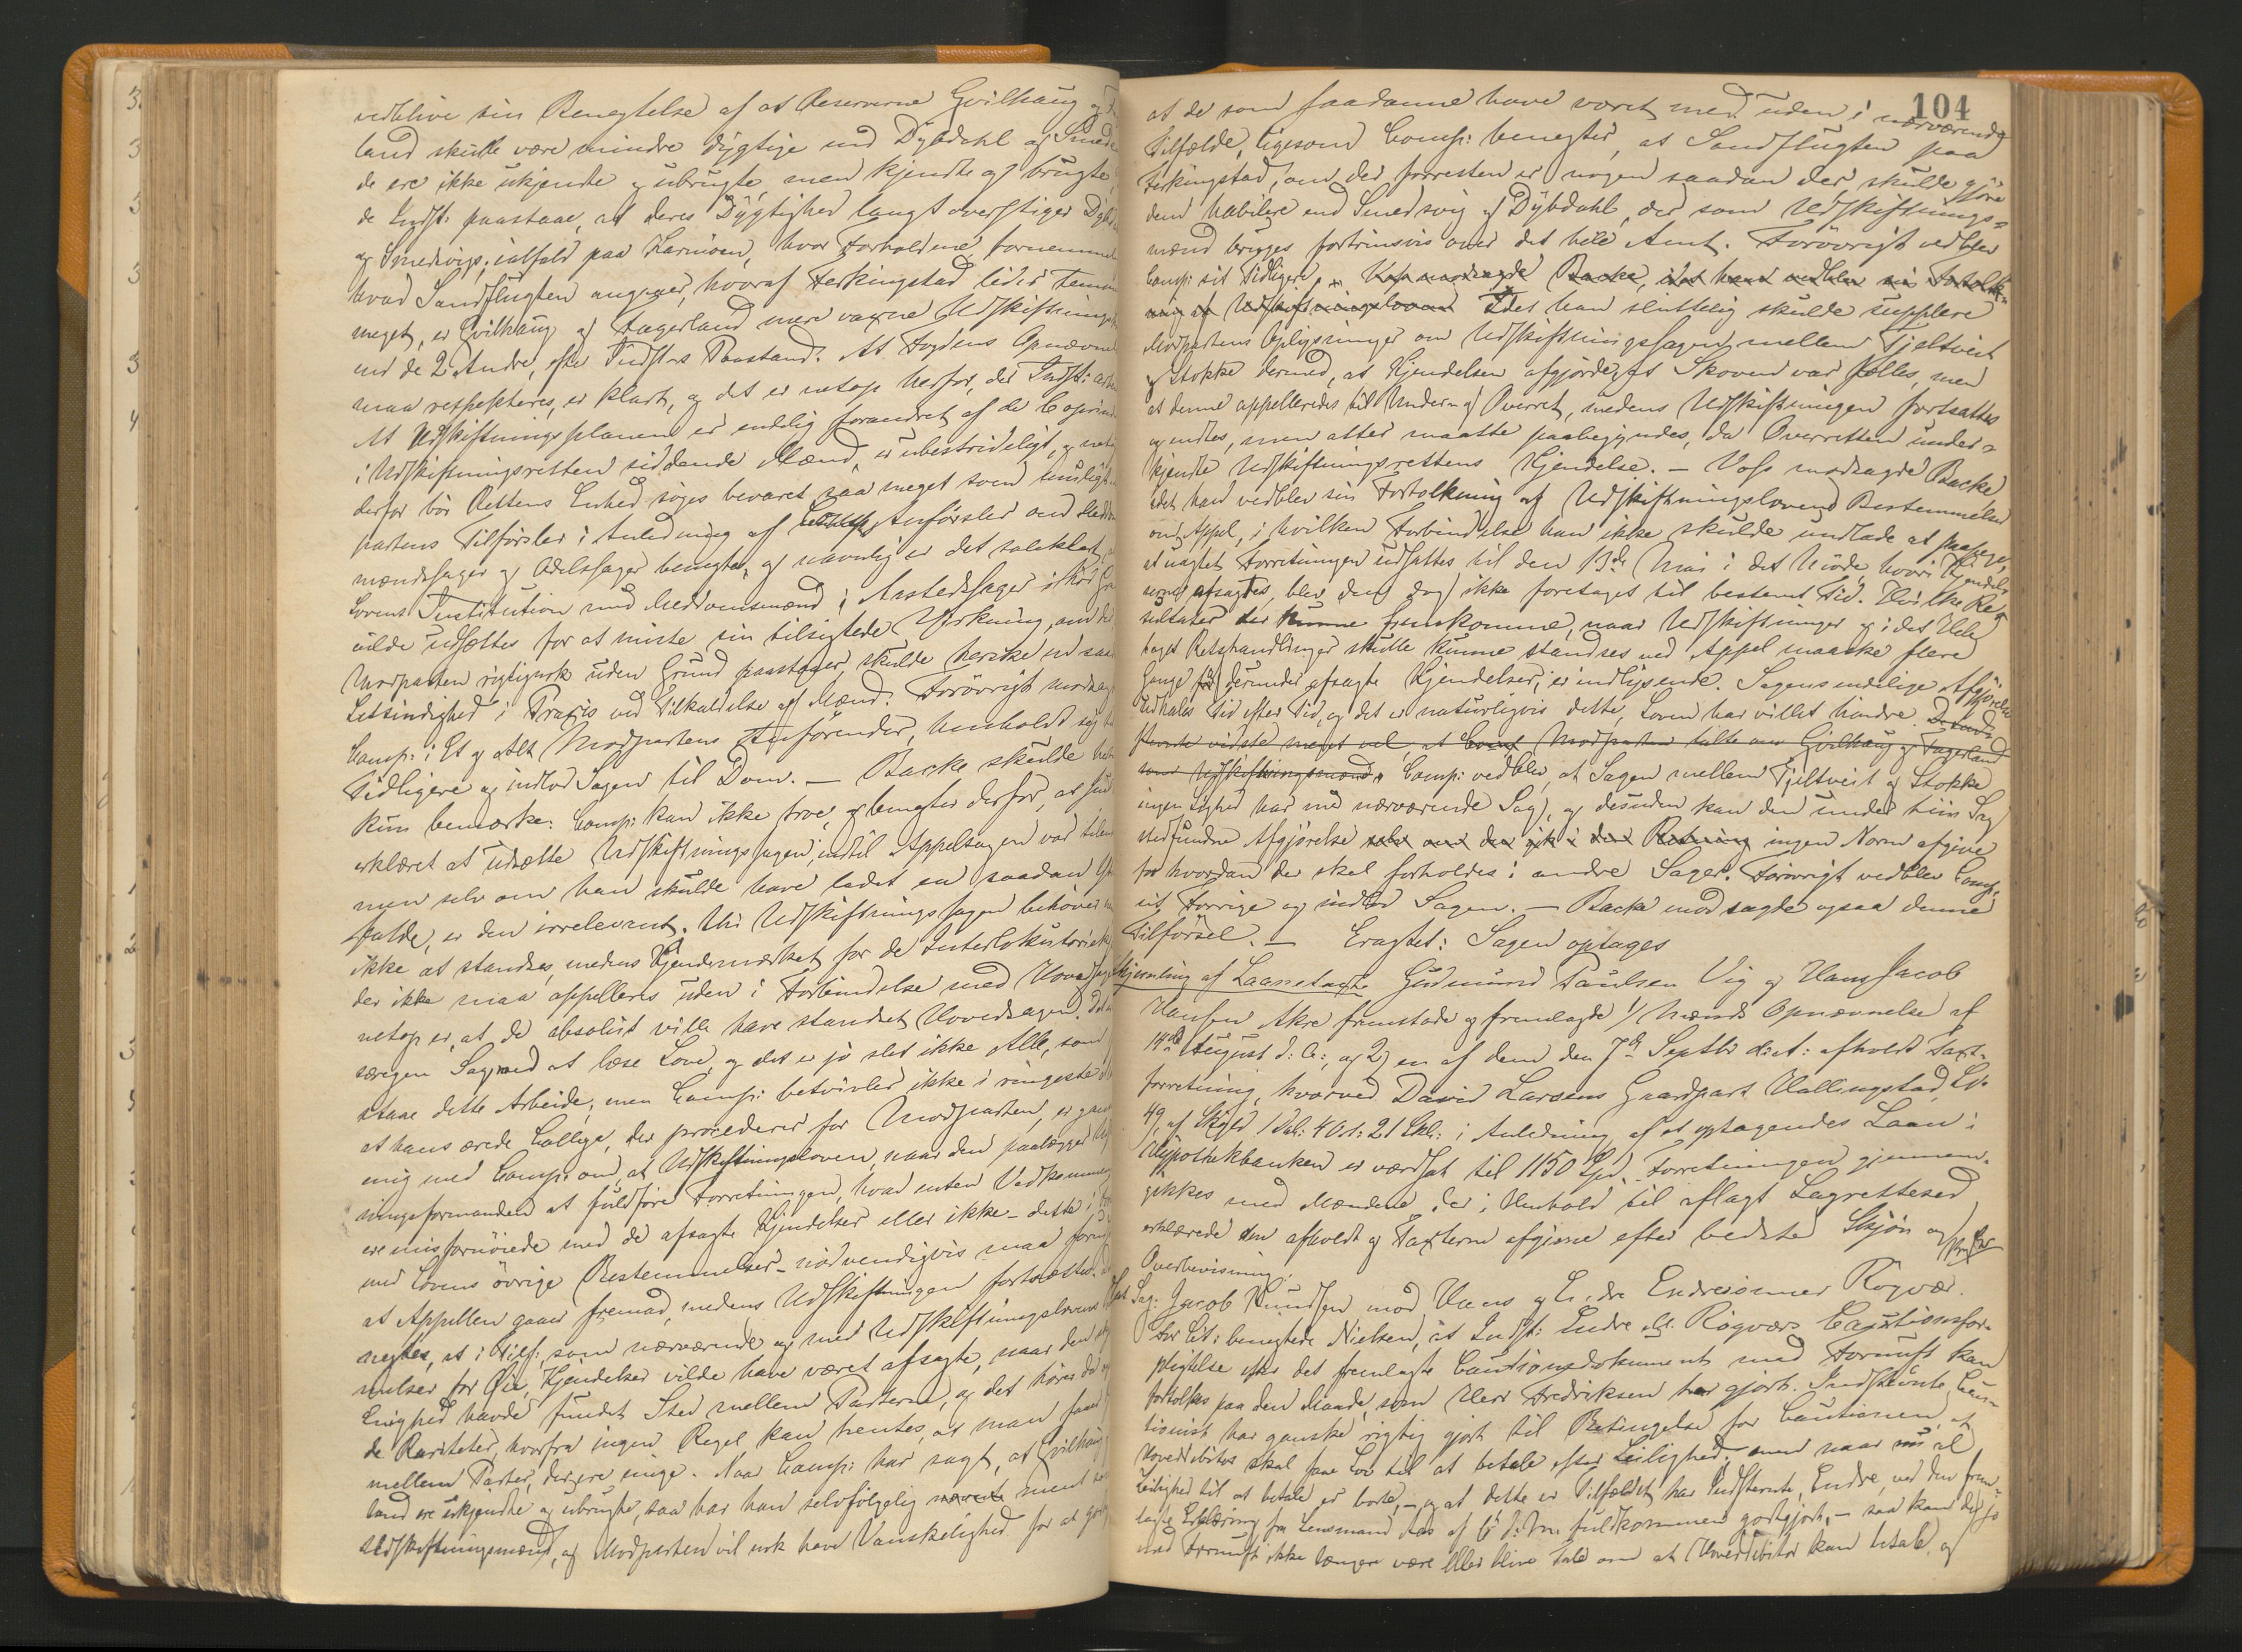 vedblive sin Benegtelse af at Reserverne Gvilhaug og
land skulle være mindre dygtige end Dybdahl og Smeds
de ere ikke ukjendte og ubrugte, men kjendte og brugte,
de Indst: paastaae, at deres Dygtighed langt overstiger
og Smedsvigs, ialfald paa Karmøen, hvor Forholdene fornemme
hvad Sandflugten angaaer, hvoraf Ferkingstad lider temm
meget, er Gvilhaug og Fagerland mere vaxne Udskiftnings
end de 2 Andre, efter Indst:s Paastand. At Fogdens Opnævn
maa respekteres, er klart, og det er netop herfor, der Indst:
At Udskiftningsplanen er endelig forandret af de
i Udskiftningsretten siddende Mænd, er ubestrideligt, og net
derfor bør Rettens Enhed søges bevaret saa meget som muligt.
partens Tilførsler i Anledning af Anførsler om
mændssager og Odelssager benegtes, og navnlig er det soleklart,
Lovens Institution med Meddomsmænd i Aastedssager
vilde udsættes for at miste sin tilsigtede Virkning, om
Modparten rigtignok uden Grund paastaaer, skulde herske en saa
Letsindighed i Praxis ved Tilkaldelse af Mænd. Forøvrigt modsag
Comp: i Et og Alt Modpartens Anførender, henholdt sig
Tidligere og indlod Sagen til Dom. — Backe skulde
kun bemærke: Comp: kan ikke troe, og benegter derfor, at
erklæret at udsætte Udskiftningssagen, indtil Appelsagen var
men selv om han skulde have ladet en saadan
falde, er den irrelevant. Thi Udskiftningssagen behøver
ikke at standses, medens Kjendemærket for de Interlokutorie
der ikke maa appelleres uden i Forbindelse med Hoveds
netop er, at de absolut ville have standset Hovedsagen.
særegen Sag med at læse Love, og det er jo slet ikke Alle, som
staae dette Arbeide, men Comp: betvivler ikke i ringeste
at hans ærede Collega, der procederer for Modparten, er
enig med Comp: om, at Udskiftningsloven, naar den paalægger
ningsformanden at fuldføre Forretningen, hvad enten Vedkomm
ere misfornøiede med de afsagte Kjendelser eller ikke – dette i
med Lovens øvrige Bestemmelser – nødvendigvis maa
at Appellen gaaer fremad, medens Udskiftningen fortsættes.
negtes, at i Tilf: som nærværende og med Udskiftningslovens
melser for Øie, Kjendelser vilde have været afsagte, naar den
Enighed havde fundet Sted mellem Parterne, og det hører
de Rariteter, hvorfra ingen Regel kan hentes, at man
mellem Parter, der ere enige. Naar Comp: har sagt, at Gvilhaug
land ere ukjendte og ubrugte, saa har han selvfølgelig ment
Udskiftningsmænd, og Modparten vil nok have Vanskelighed for at
104
at de som saadanne have været med uden i nærværende
Tilfælde, ligesom Comp: benegter, at Sandflugten paa
Ferkingstad, om der forresten er nogen saadan der, skulde gjøre
dem habilere end Smedsvig og Dybdahl, der som Udskiftnings-
mænd bruges fortrinsvis over det hele Amt. Forøvrigt vedblev
Comp: sit Tidligere, Voss modsagde Backe, idet han vedblev sin Fortolk-
ning af Udskiftningsloven Idet han sluttelig skulde supplere
Modpartens Oplysninger om Udskiftningssagen mellem Tjeltveit
og Stokke dermed, at Kjendelsen afgjorde, at Skoven var fælles, men
at denne appelleredes til Under- og Overret, medens Udskiftningen fortsattes
og endtes, men atter maatte paabegyndes, da Overretten under-
kjendte Udskiftningsrettens Kjendelse. — Voss modsagde Backe,
idet han vedblev sin Fortolkning af Udskiftningslovens Bestemmelser
om Appel, i hvilken Forbindelse han ikke skulde undlade at paapege,
at uagtet Forretningen udsattes til den 13de Mai i det Møde, hvori Kjendel-
serne afsagdes, blev den dog ikke foretaget til bestemt Tid. Hvilke Re-
sultater der kunne fremkomme, naar Udskiftninger og i det Hele
taget Retshandlinger skulle kunne standses ved Appel maaske flere
Gange for derunder afsagte Kjendelser, er indlysende. Sagens endelige Afgjørelse
udhales Tid efter Tid, og det er naturligvis dette, Loven har villet hindre.
vidste meget vel, at Modparten talte om Gvilhaug og Fagerland
som Udskiftningsmænd. Comp: vedblev, at Sagen mellem Tjeltveit og Stokke
ingen Lighed har med nærværende Sag, og desuden kan den under hiin Sag
stedfundne Afgjørelse selv om den gik i den Retning ingen Norm afgive
for hvordan der skal forholdes i andre Sager. Forøvrigt vedblev Comp:
sit Forrige og indlod Sagen. — Backe modsagde ogsaa denne
Tilførsel. — Eragtet: Sagen optages
Hjemling af Laanetaxt Gudmund Paulsen Vig og Hans Jacob
Hansen Akre fremstode og fremlagde 1/ Mænds Opnævnelse af
14de August d: A:, og 2) en af dem den 7de Septbr d: A: afholdt Taxt-
forretning, hvorved David Larsens Gaardpart Hallingstad, L.
49, af Skyld 1 Dal: 4 Ort: 21 Skl: i Anledning af et optagendes Laan i
Hypothekbanken er værdsat til 1150 Spd. Forretningen gjennem-
gikkes med Mændene, der i Henhold til aflagt Lagretteseed
erklærede den afholdt og Taxterne afgivne efter bedste Skjøn og
Overbevisning.
Sag: Jacob Knudsen mod Hans og Endre Endresønner Røgvær.
For Cit: benegtede Nielsen, at Indst: Endre Røgværs Cautionsfor-
pligtelse efter det fremlagte Cautionsdokument med Fornuft kan
fortolkes paa den Maade, som Herr Fredriksen har gjort. Indstevnte Cau-
tionist har ganske rigtig gjort til Betingelse for Cautionen, at
Hoveddebitor skal faae Lov til at betale efter Leilighed; men naar al
Leilighed til at betale er borte, – og at dette er Tilfældet har Indstevnte, Endre, ved den frem-
lagte Erklæring fra Lensmand Aas af 6 d: M: fuldkommen godtgjort, – saa kan der jo
med Fornuft ikke længere være eller blive Tale om at Hoveddebitor kan betale, og